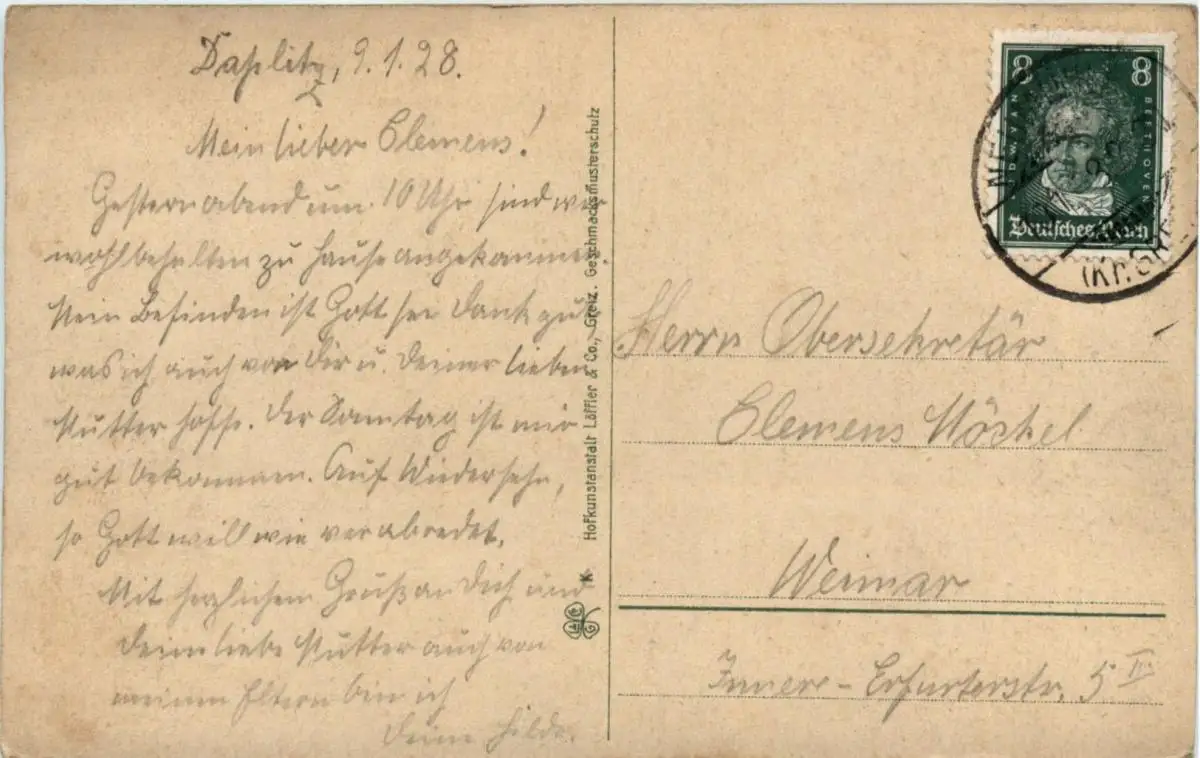 Daßlitz, 9.1.28.
Mein lieber Clemens!
Gestern abend um 10 Uhr sind wir
wohlbehalten zu Hause angekommen.
Mein Befinden ist Gott sei Dank gut
was ich auch von Dir u. Deiner lieben
Mutter hoffe. Der Samstag ist mir
gut bekommen. Auf Wiedersehn,
so Gott will wie verabredet.
Mit herzlichem Gruß an Dich und
Deine liebe Mutter auch von
meinen Eltern bin ich
Deine Hilde.
Hofkunstanstalt Löffler & Co., Greiz. Geschmacksmusterschutz
8 8
BEETHOVEN
Deutsches Reich
(Kr.
Herrn Obersekretär
Clemens Möckel
Weimar
Innere-Erfurterstr. 5 II